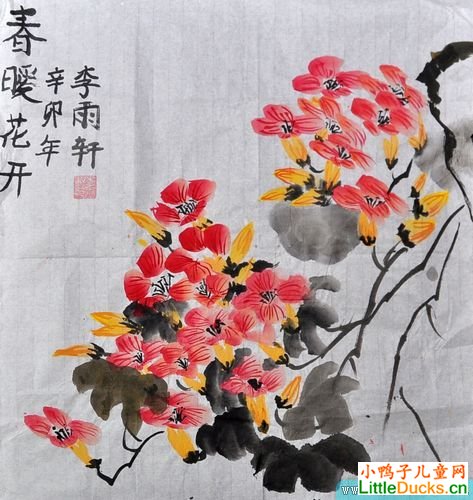 春暖花开
辛卯年
李雨轩
小鸭子儿童网
LittleDucks.cn
www